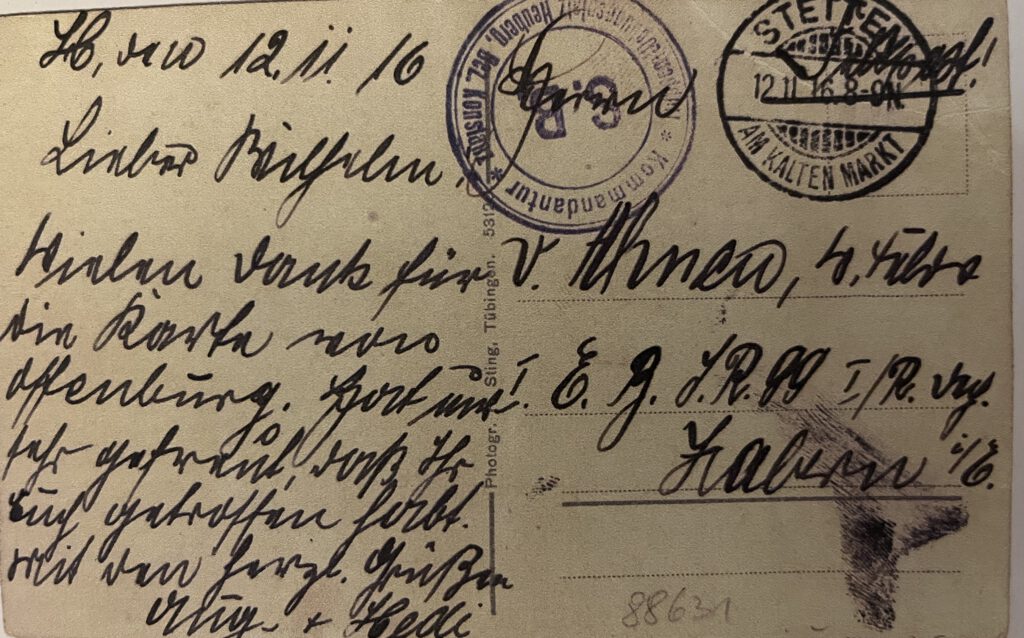 H, den 12.11.16
Lieber Wilhelm,
Vielen Dank für
die Karte von
Offenburg. Hat uns
sehr gefreut, daß Ihr
Euch getroffen habt.
Mit den herzl. Grüßen
Aug. + Hedi
Photogr. Sling, Tübingen. 5312
* Kommandantur *
Heuberg, Bez. Konstanz
G.B
STETTEN
12.11.16.8-9N.
AM KALTEN MARKT
Feldpost!
Herrn
v. Ahnen,
I. E. B. I.R. 99 I/R.
Zabern i/E.
88631